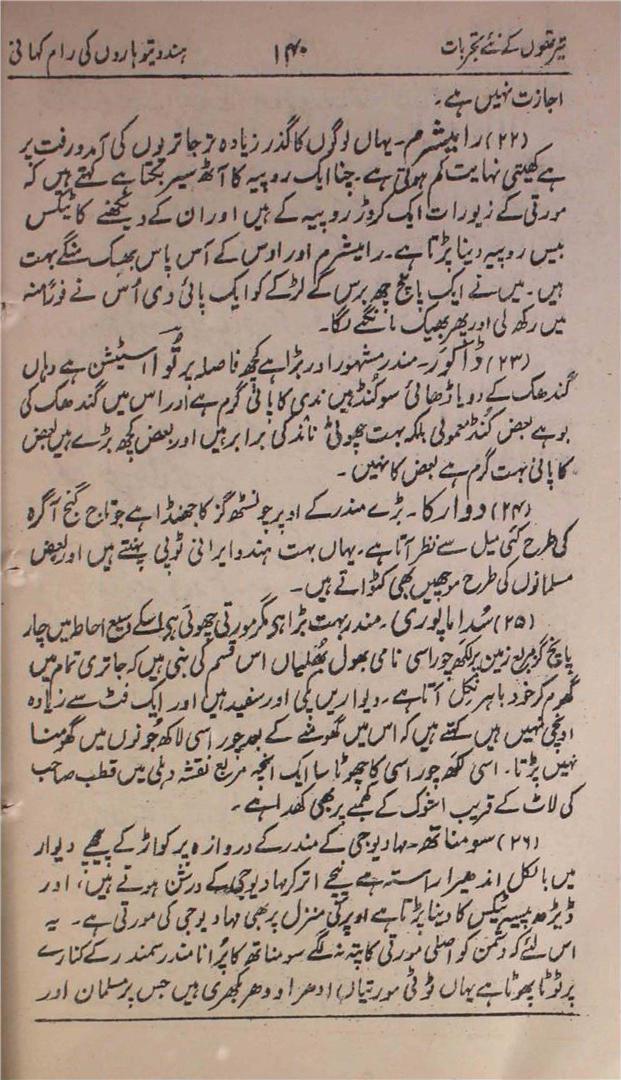 تیرتھوں کے نئے تجربات ۱۴۰ ہندو تیوہاروں کی رام کہانی
اجازت نہیں ہے۔
(۲۲) رامیشرم۔ یہاں لوگوں کا گذر زیادہ تر جاتریوں کی آمدورفت پر
ہے کھیتی نہایت کم ہوتی ہے۔ چنا ایک روپیہ کا آٹھ سیر بکتا ہے کہتے ہیں کہ
مورتی کے زیورات ایک کروڑ روپیہ کے ہیں اور ان کے دیکھنے کا ٹیکس
بیس روپیہ دینا پڑتا ہے۔ رامیشرم اور اوس کے آس پاس بھیک منگے بہت
ہیں۔ میں نے ایک پانچ چھ برس کے لڑکے کو ایک پائی دی اُس نے فوراً منہ
میں رکھ لی اور پھر بھیک مانگنے لگا۔
(۲۳) ڈاکور۔ مندر مشہور اور بڑا ہے کچھ فاصلہ پر ٹُوا اسٹیشن ہے وہاں
گندھک کے دو یا ڈھائی سو کنڈ ہیں ندی کا پانی گرم ہے اور اس میں گندھک کی
بو ہے بعض کُنڈ معمولی بلکہ بہت چھوٹی ناند کی برابر ہیں اور بعض کچھ بڑے ہیں بعض
کا پانی بہت گرم ہے بعض کا نہیں۔
(۲۴) دوارکا۔ بڑے مندر کے اوپر چونسٹھ گز کا جھنڈا ہے جو تاج گنج آگرہ
کی طرح کئی میل سے نظر آتا ہے۔ یہاں بہت ہندو ایرانی ٹوپی پہنتے ہیں اور بعض
مسلمانوں کی طرح موچھیں بھی کٹواتے ہیں۔
(۲۵) سُداماپوری۔ مندر بہت بڑا ہی مگر مورتی چھوٹی ہی اسکے وسیع احاطہ میں چار
پانچ گز مربع زمین پر لکھ چوراسی نامی بھول بھُلیاں اس قسم کی بنی ہیں کہ جاتری تمام میں
گھوم کر خود باہر نکل آتا ہے۔ دیواریں پکی اور سفید ہیں اور ایک فٹ سے زیادہ
اونچی نہیں ہیں کہتے ہیں کہ اس میں گھومنے کے بعد چوراسی لاکھ جُونوں میں گھومنا
نہیں پڑتا۔ اسی لکھ چوراسی کا چھوٹا سا ایک انچہ مربع نقشہ دہلی میں قطب صاحب
کی لاٹ کے قریب اشوک کے کھمبے پر بھی کھدا ہے۔
(۲۶) سومناتھ۔ مہادیوجی کے مندر کے دروازہ پر کواڑ کے پیچھے دیوار
میں بالکل اندھیرا راستہ ہے نیچے اتر کر مہادیوجی کے درشن ہوتے ہیں، اور
ڈیڑھ پیسہ ٹیکس کا دینا پڑتا ہے اوپر کی منزل پر بھی مہادیوجی کی مورتی ہے۔ یہ
اس لئے کہ دشمن کو اصلی مورتی کا پتہ نہ لگے سومناتھ کا پُرانا مندر سمندر کے کنارے
پر ٹوٹا پھوٹا ہے یہاں ٹوٹی مورتیاں ادھر اودھر بکھری ہیں جس پر مسلمان اور